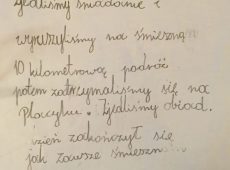 zjedliśmy śniadanie i
wyruszyliśmy na śmieszną
10 kilometrową podróż
potem zatrzymaliśmy się na
Placyku. Zjedliśmy obiad.
dzień zakończył się
jak zawsze śmieszn...